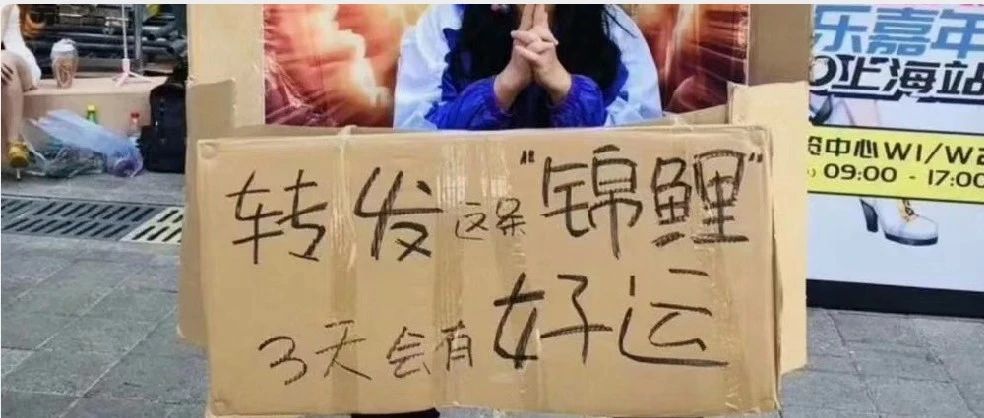 转发这条“锦鲤”
3天会有好运
乐嘉年
上海站
中心W1/W2
09:00 - 17:00